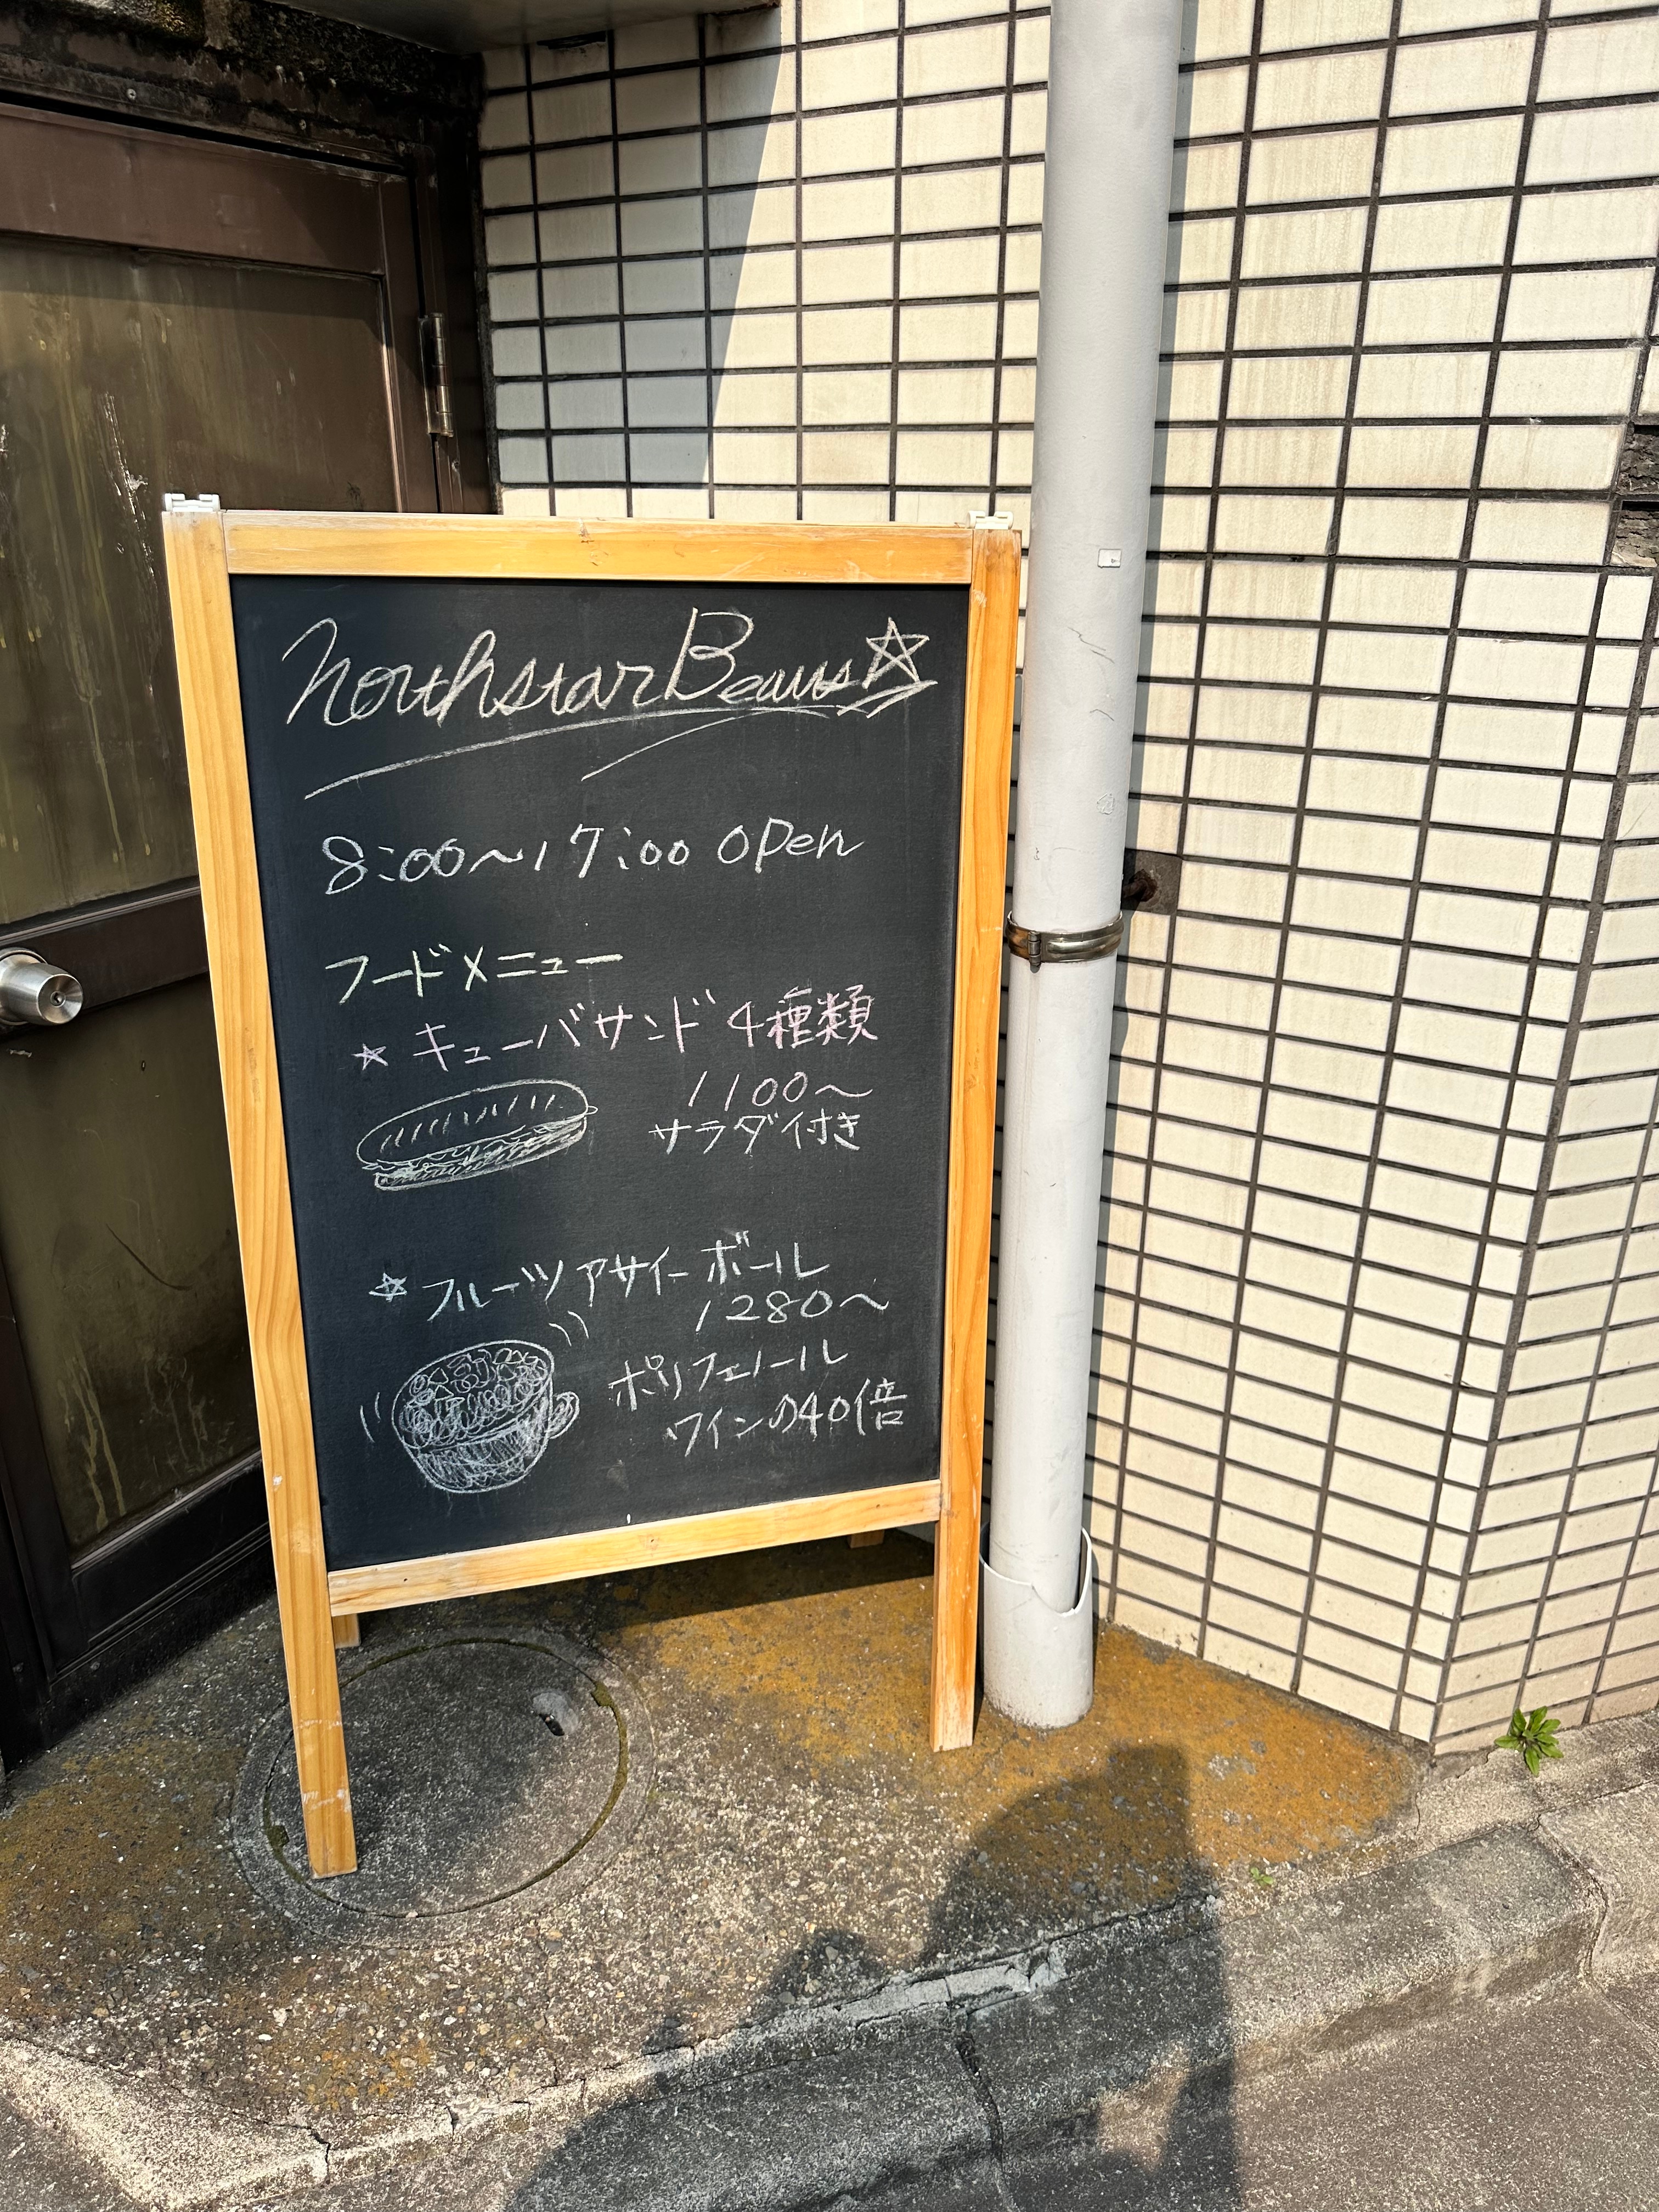 Northstar Beans☆
8:00〜17:00 open
フードメニュー
☆ キューバサンド 4種類
1100〜
サラダ付き
☆ フルーツアサイーボール
1280〜
ポリフェノール
ワインの40倍